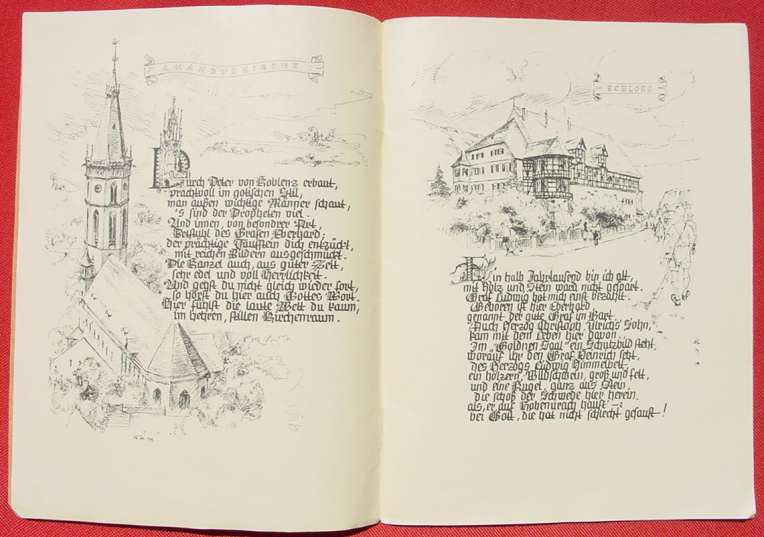 AMANDUSKIRCHE
Durch Peter von Koblenz erbaut,
prachtvoll im gotischen Stil,
man außen wichtige Männer schaut,
's sind der Propheten viel.
Und innen, von besondrer Art,
Betstuhl des Grafen Eberhard;
der prächtige Taufstein dich entzückt,
mit reichen Bildern ausgeschmückt.
Die Kanzel auch, aus guter Zeit,
sehr edel und voll Herrlichkeit.
Und gehst du nicht gleich wieder fort,
so hörst du hier auch Gottes Wort.
Hier fühlst die laute Welt du kaum,
im hehren, stillen Kirchenraum.
SCHLOSS
Ein halb Jahrtausend bin ich alt,
mit Holz und Stein ward nicht gespart.
Graf Ludwig hat mich einst bezahlt.
Geboren ist hier Eberhard
genannt der gute Graf im Bart.
Auch Herzog Christoph, Ulrichs Sohn,
kam mit dem Leben hier davon.
Im "Goldnen Saal" ein Schnitzbild steht,
worauf ihr den Graf Heinrich seht,
des Herzogs Ludwig Himmelbett,
ein hölzern Wildschwein, groß und fett,
und eine Kugel, ganz aus Stein,
die schoß der Schwede hier herein,
als er auf Hohenurach haust' –
bei Gott, die hat nicht schlecht gesaust!